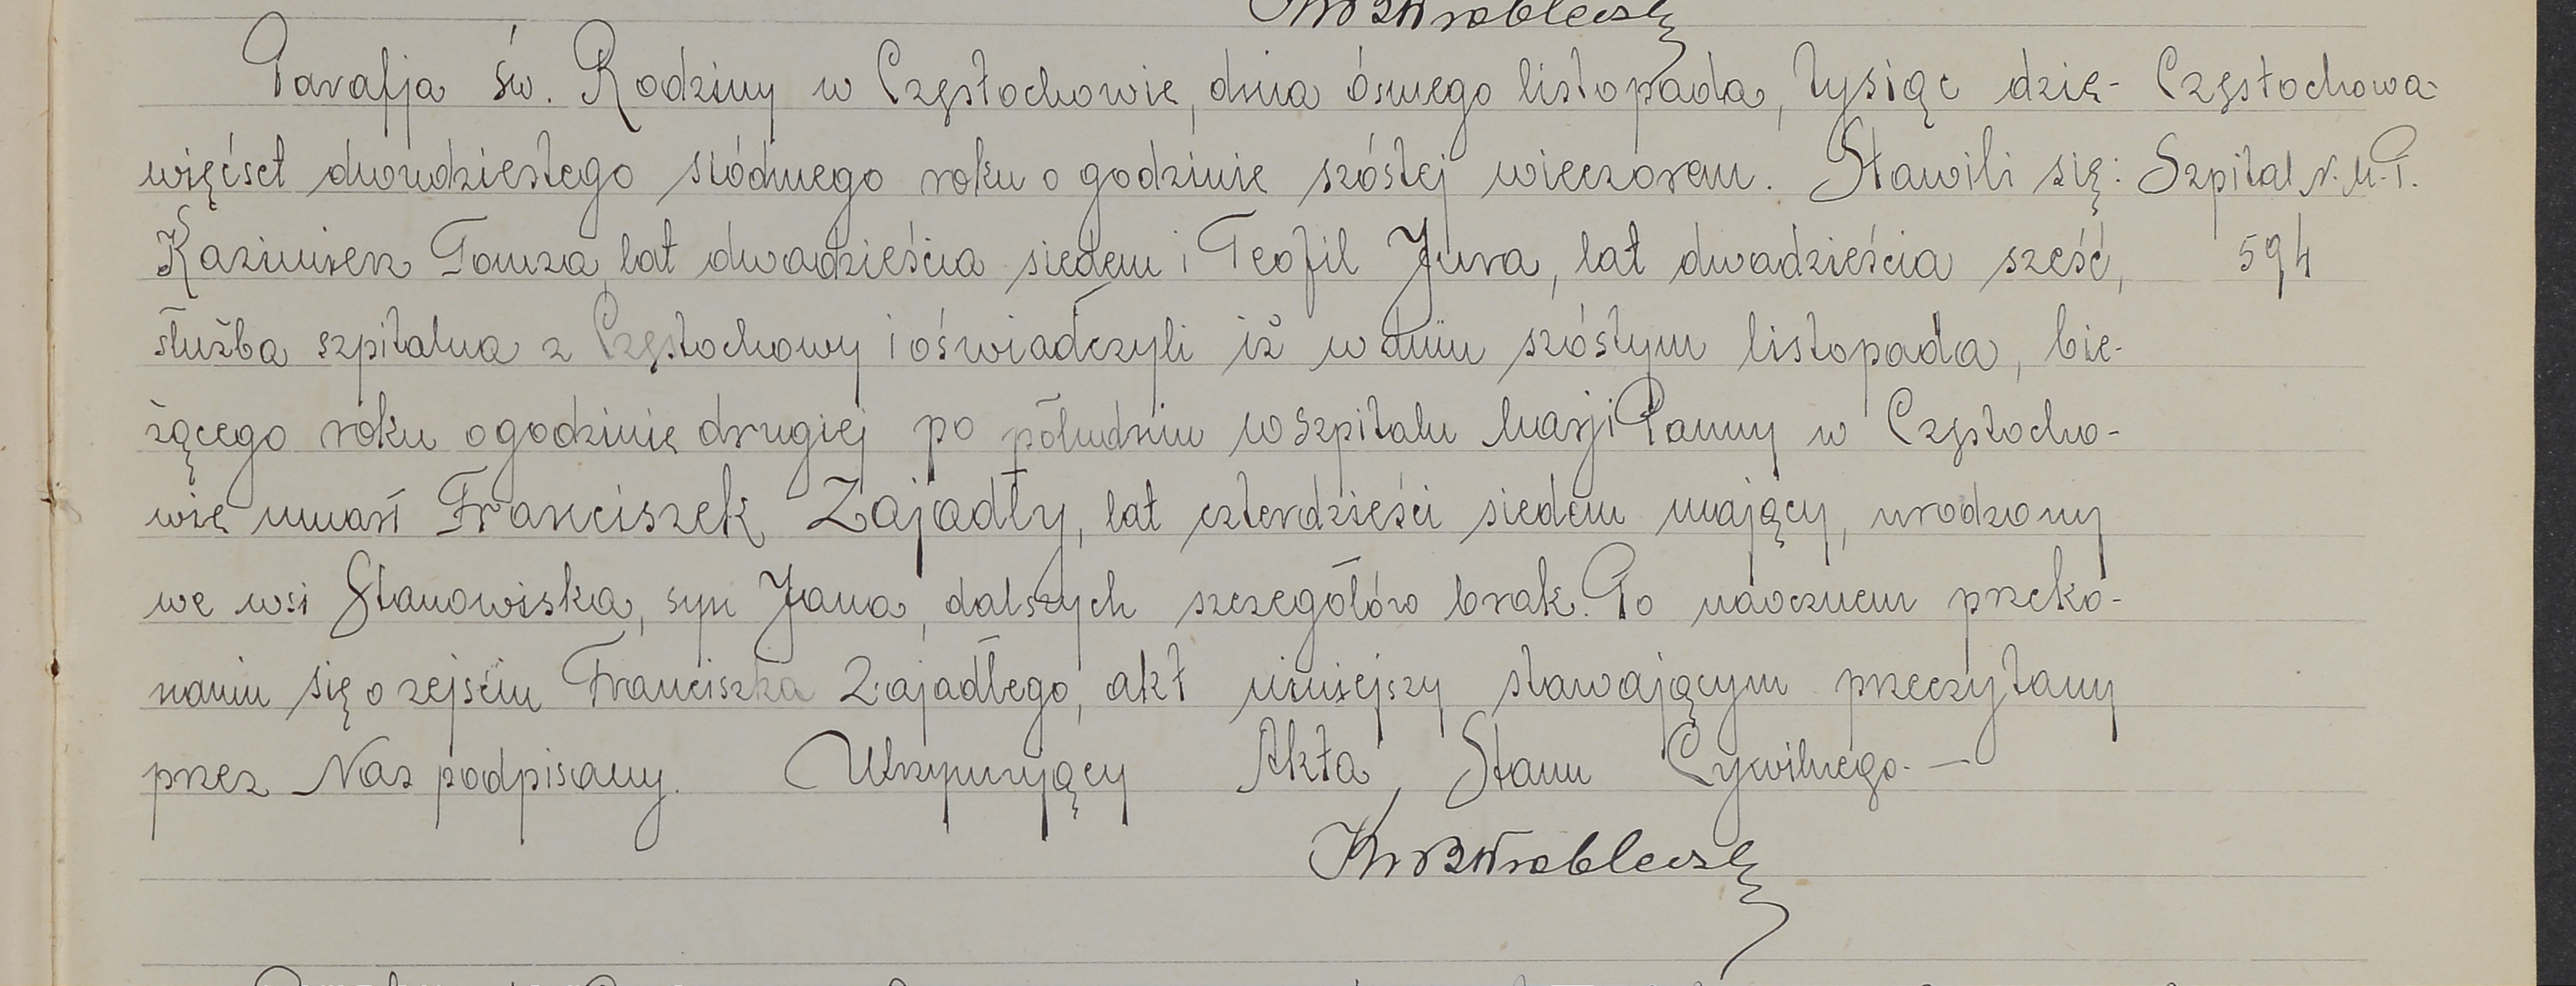 Parafja św. Rodziny w Częstochowie, dnia ósmego listopada, tysiąc dzie- Częstochowa
więćset dwudziestego siódmego roku o godzinie szóstej wieczorem. Stawili się: Szpital N. M. P.
Kazimierz Tomza, lat dwadzieścia siedem i Teofil Jura, lat dwadzieścia sześć, 594
służba szpitalna z Częstochowy i oświadczyli iż w dniu szóstym listopada, bie-
żącego roku o godzinie drugiej po południu w szpitalu Marji Panny w Częstocho-
wie umarł Franciszek Zajadły, lat czterdzieści siedem mający, urodzony
we wsi Stanowiska, syn Jana, dalszych szczegółów brak. Po naocznem przeko-
naniu się o zejściu Franciszka Zajadłego, akt niniejszy stawającym przeczytany
przez Nas podpisany. Utrzymujący Akta Stanu Cywilnego. —